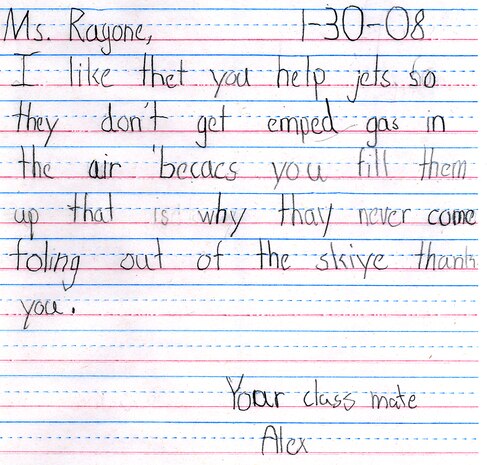 Ms. Ragone, 1-30-08
I like thet you help jets so
they don't get emped gas in
the air becacs you fill them
up that is why thay never come
foling out of the skiye thank
you.
Your class mate
Alex